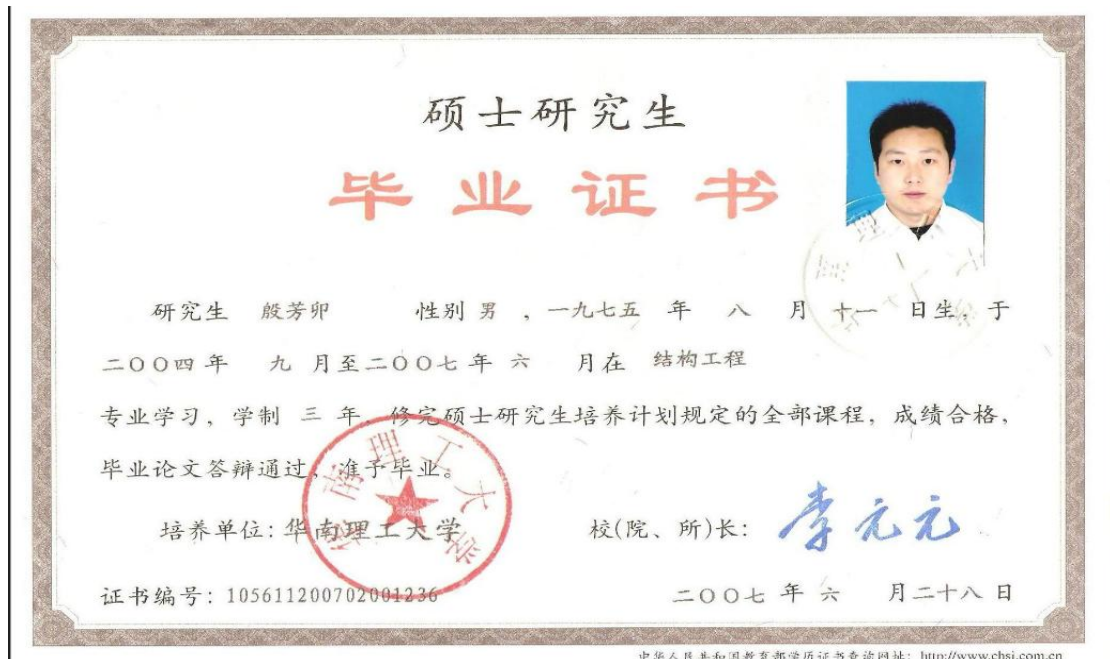 硕士研究生
毕业证书
研究生 殷芳卯 性别 男 ，一九七五 年 八 月 十一 日生，于
二〇〇四 年 九 月至 二〇〇七 年 六 月在 结构工程
专业学习，学制 三 年，修完硕士研究生培养计划规定的全部课程，成绩合格，
毕业论文答辩通过，准予毕业。
华南理工大学
培养单位：华南理工大学 校(院、所)长： 李元元
证书编号：105611200702001236 二〇〇七 年 六 月 二十八 日
中华人民共和国教育部学历证书查询网址：http://www.chsi.com.cn